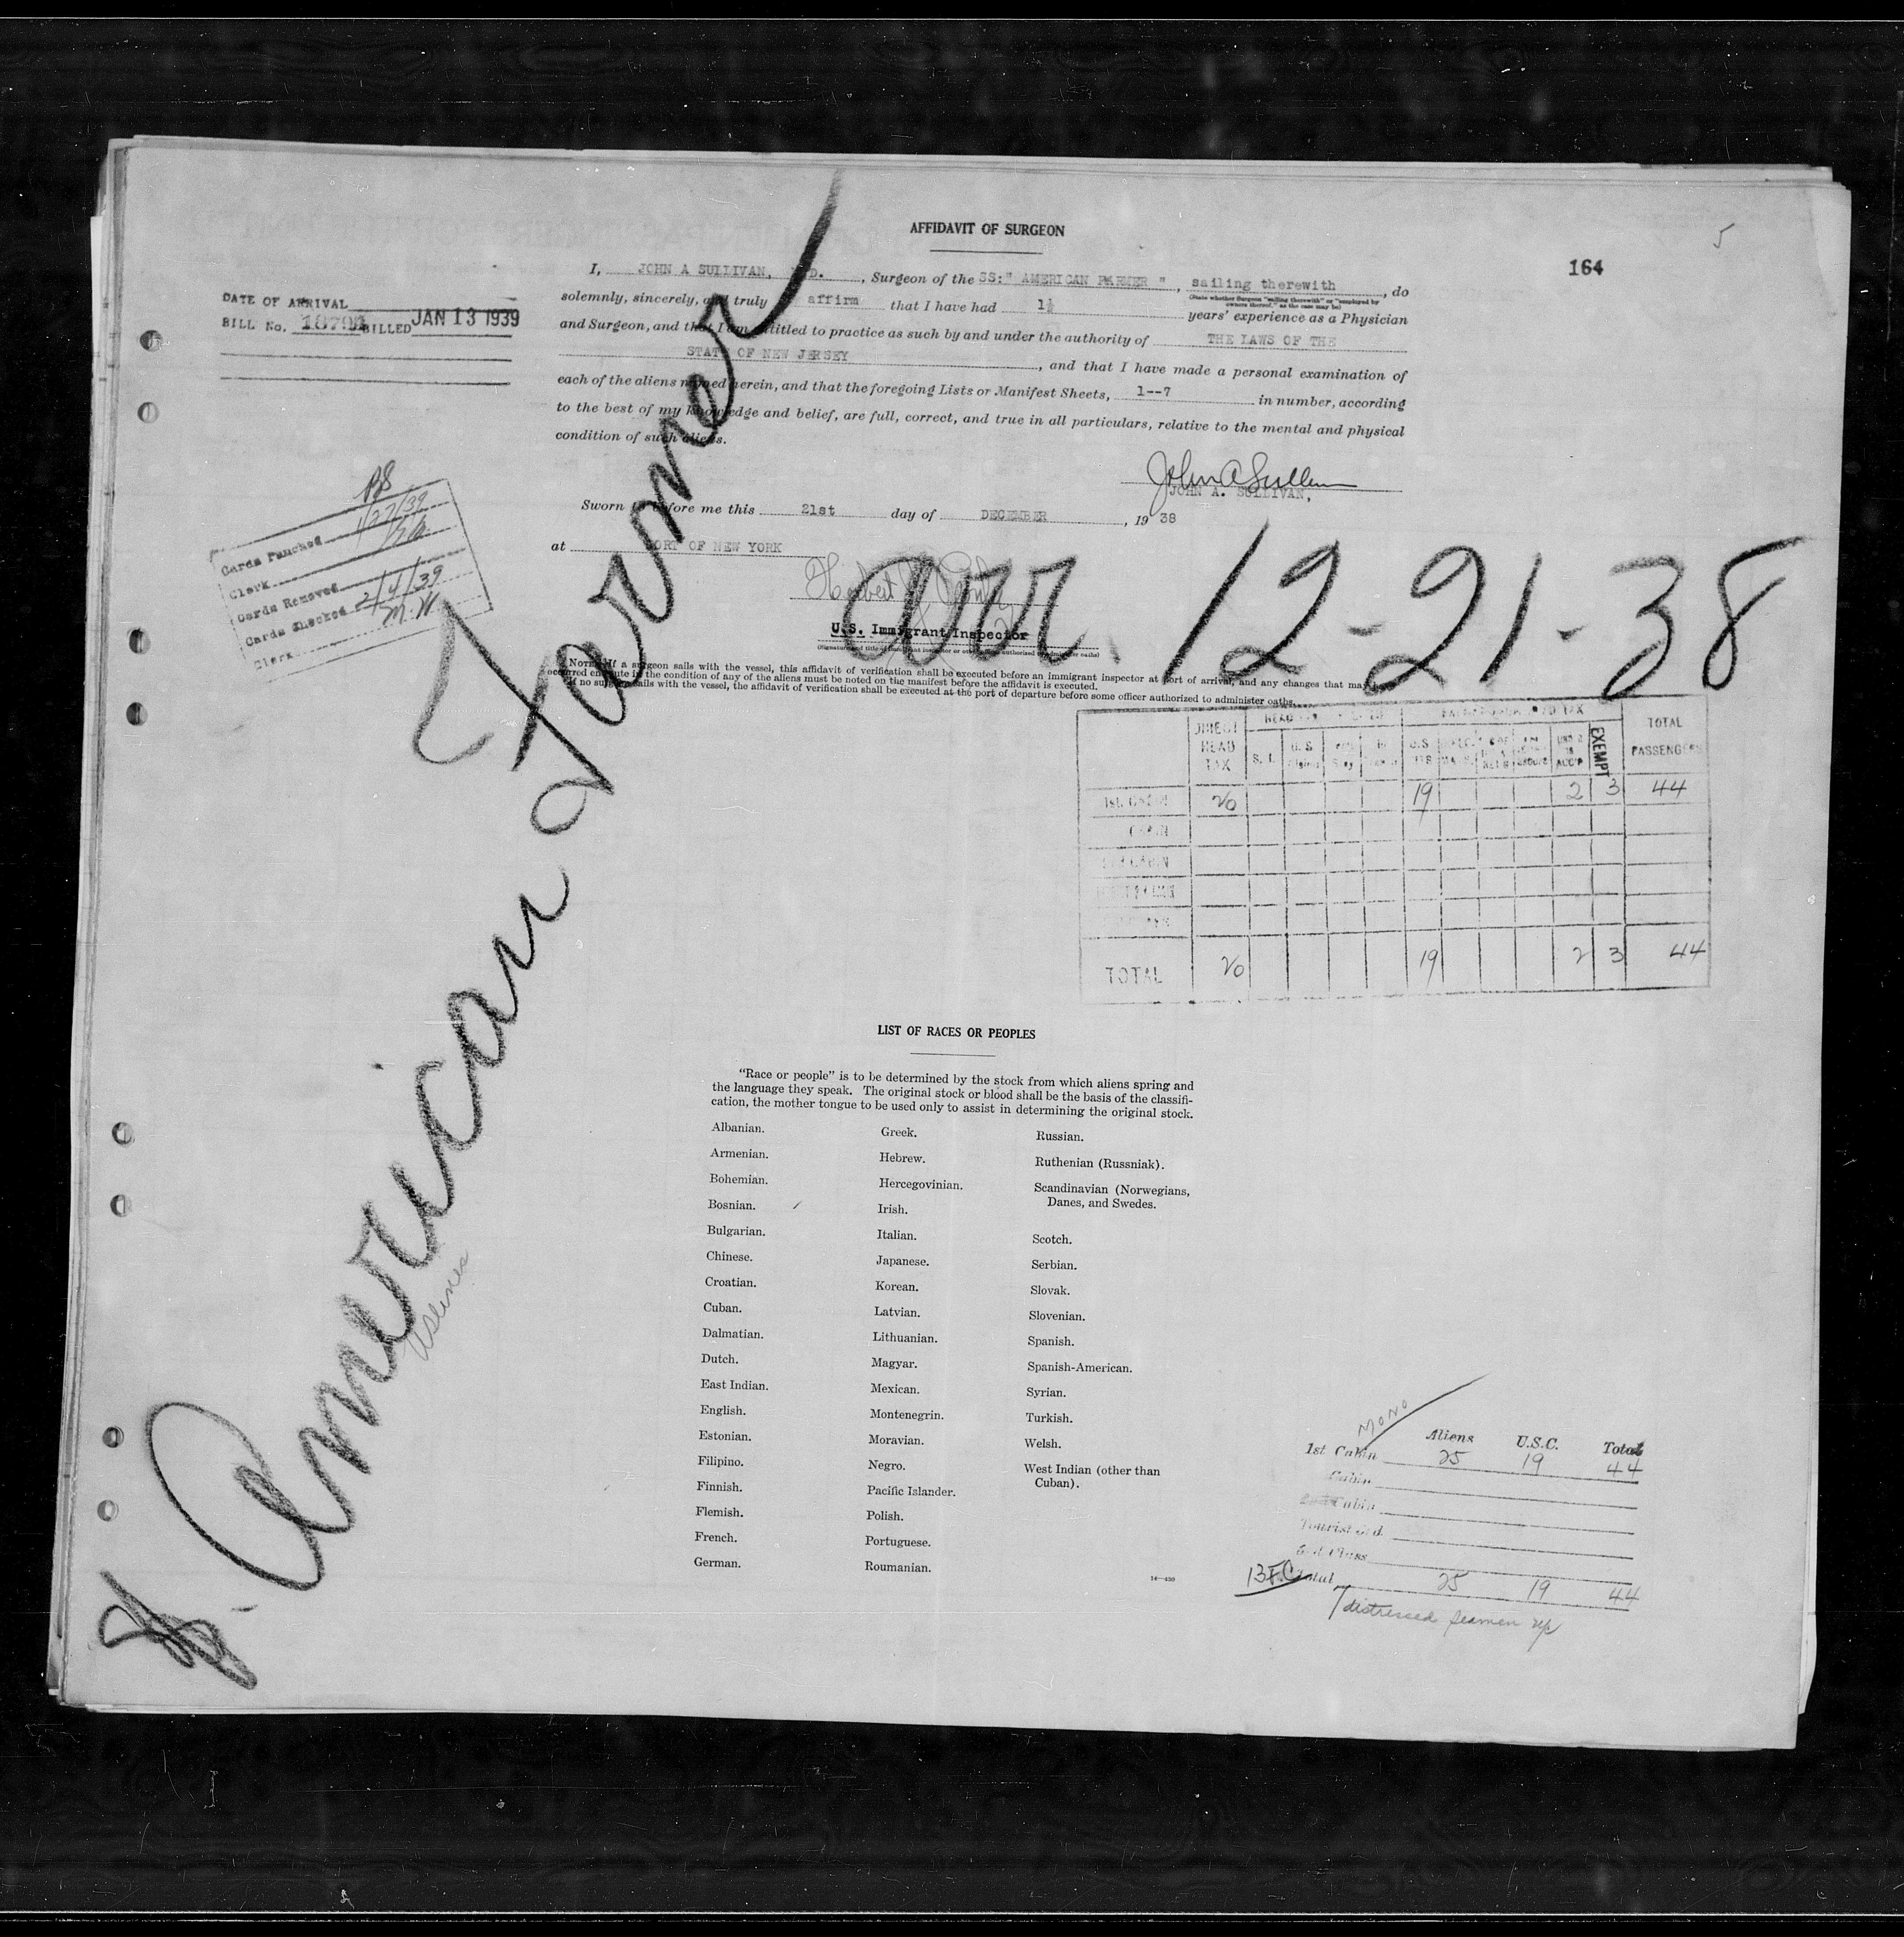 5
164
AFFIDAVIT OF SURGEON
I, JOHN A SULLIVAN, D., Surgeon of the SS:" AMERICAN FARMER ", sailing therewith, do
(State whether Surgeon "sailing therewith" or "employed by
owners thereof," as the case may be)
solemnly, sincerely, and truly affirm that I have had 1½ years' experience as a Physician
and Surgeon, and that I am entitled to practice as such by and under the authority of THE LAWS OF THE
STATE OF NEW JERSEY, and that I have made a personal examination of
each of the aliens named herein, and that the foregoing Lists or Manifest Sheets, 1--7 in number, according
to the best of my knowledge and belief, are full, correct, and true in all particulars, relative to the mental and physical
condition of such aliens.
DATE OF ARRIVAL
BILL No. BILLED JAN 13 1939
John A Sullivan
JOHN A. SULLIVAN,
Sworn to before me this 21st day of DECEMBER, 19 38
at PORT OF NEW YORK
Herbert
U.S. Immigrant Inspector
Cards Punched 1/27/39
Clerk
Cards Removed
Cards Checked 2/4/39
Clerk M.W.
arr. 12-21-38
American Farmer
NOTE.—If a surgeon sails with the vessel, this affidavit of verification shall be executed before an immigrant inspector at port of arrival, and any changes that may
occurred en route in the condition of any of the aliens must be noted on the manifest before the affidavit is executed.
If no surgeon sails with the vessel, the affidavit of verification shall be executed at the port of departure before some officer authorized to administer oaths.
DIRECT HEAD TAX S. I. U.S. EXEMPT TOTAL PASSENGERS
20 19 2 3 44
TOTAL 20 19 2 3 44
LIST OF RACES OR PEOPLES
"Race or people" is to be determined by the stock from which aliens spring and
the language they speak. The original stock or blood shall be the basis of the classifi-
cation, the mother tongue to be used only to assist in determining the original stock.
Albanian.
Armenian.
Bohemian.
Bosnian.
Bulgarian.
Chinese.
Croatian.
Cuban.
Dalmatian.
Dutch.
East Indian.
English.
Estonian.
Filipino.
Finnish.
Flemish.
French.
German.
Greek.
Hebrew.
Hercegovinian.
Irish.
Italian.
Japanese.
Korean.
Latvian.
Lithuanian.
Magyar.
Mexican.
Montenegrin.
Moravian.
Negro.
Pacific Islander.
Polish.
Portuguese.
Roumanian.
Russian.
Ruthenian (Russniak).
Scandinavian (Norwegians,
Danes, and Swedes.
Scotch.
Serbian.
Slovak.
Slovenian.
Spanish.
Spanish-American.
Syrian.
Turkish.
Welsh.
West Indian (other than
Cuban).
14—430
MONO
Aliens U.S.C. Total
1st Cabin 25 19 44
Cabin
Cabin
Tourist 3rd.
3rd Class
Total 25 19 44
7 distressed seamen